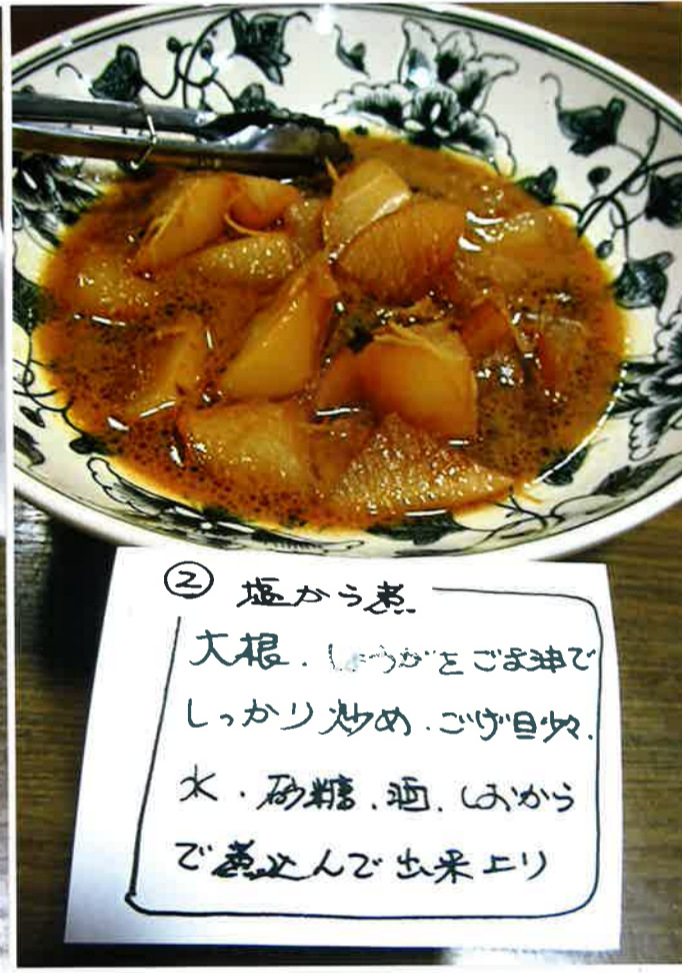 ② 塩から煮
大根.しょうがをごま油で
しっかり炒め.こげ目少々.
水.砂糖.酒.しおから
で煮込んで出来上り